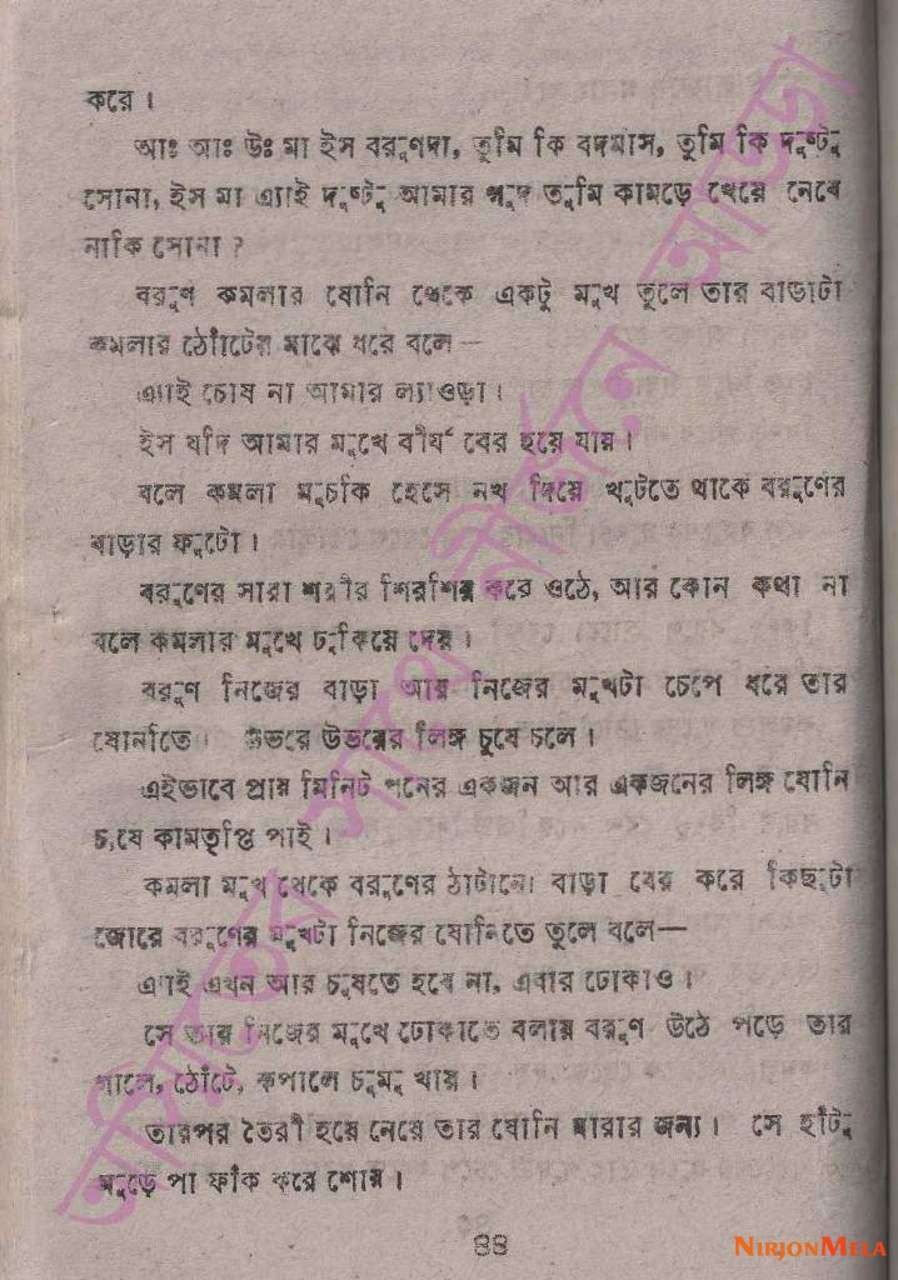 করে।
আঃ আঃ উঃ মা ইস বরুণদা, তুমি কি বদমাস, তুমি কি দুষ্টু
সোনা, ইস মা এ্যাই দুষ্টু আমার গুদ তুমি কামড়ে খেয়ে নেবে
নাকি সোনা ?
বরুণ কমলার যোনি থেকে একটু মুখ তুলে তার বাড়াটা
কমলার ঠোঁটের মাঝে ধরে বলে—
এ্যাই চোষ না আমার ল্যাওড়া।
ইস যদি আমার মুখে বীর্য বের হয়ে যায়।
বলে কমলা মুচকি হেসে নখ দিয়ে খুটতে থাকে বরুণের
বাড়ার ফুটো।
বরুণের সারা শরীর শিরশির করে ওঠে, আর কোন কথা না
বলে কমলার মুখে ঢুকিয়ে দেয়।
বরুণ নিজের বাড়া আর নিজের মুখটা চেপে ধরে তার
যোনিতে। উভরে উভরের লিঙ্গ চুষে চলে।
এইভাবে প্রায় মিনিট পনের একজন আর একজনের লিঙ্গ যোনি
চুষে কামতৃপ্তি পাই।
কমলা মুখ থেকে বরুণের ঠাটানো বাড়া বের করে কিছুটা
জোরে বরুণের মুখটা নিজের যোনিতে তুলে বলে—
এ্যাই এখন আর চুষতে হবে না, এবার ঢোকাও।
সে তার নিজের মুখে ঢোকাতে বলায় বরুণ উঠে পড়ে তার
গালে, ঠোঁটে, কপালে চুমু খায়।
তারপর তৈরী হয়ে নেয় তার যোনি মারার জন্য। সে হাঁটু
মুড়ে পা ফাঁক করে শোয়।
৪৪
আসিতেছে সাথে নির্জনে আড্ডা
NIRJONMELA